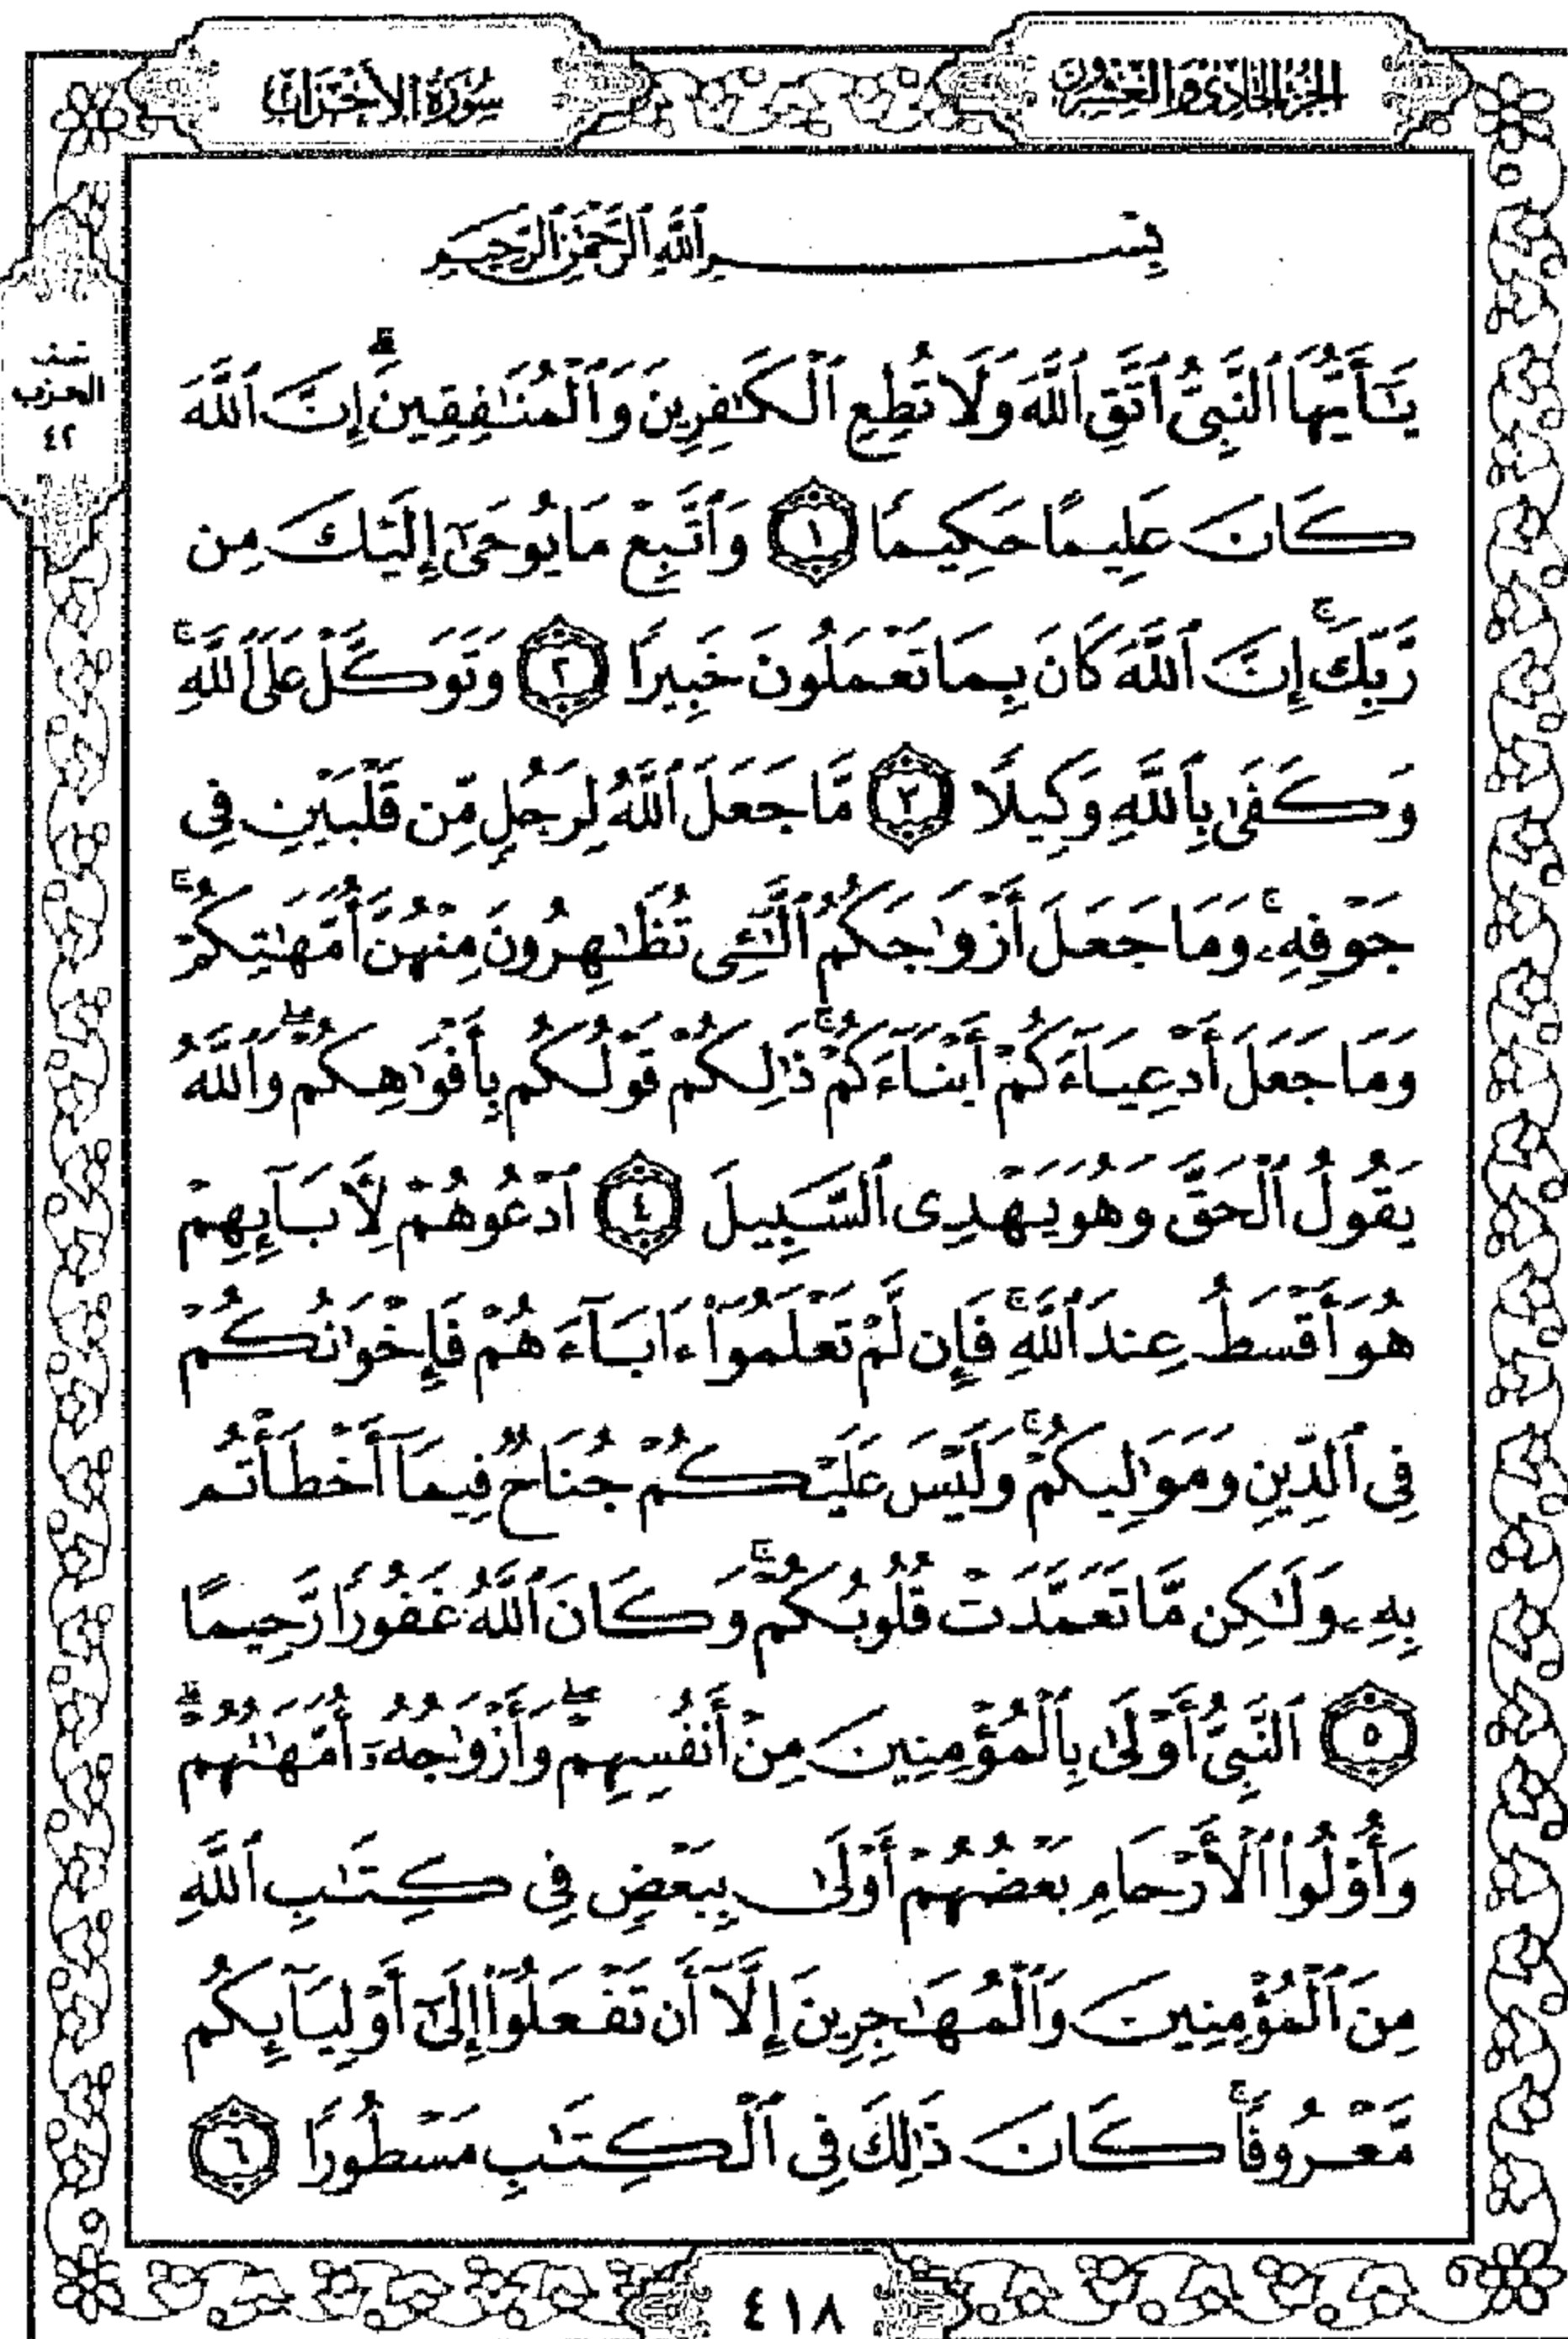 الجزء الحادي والعشرون
سورة الأحزاب
نصف
الحزب
٤٢
بِسْمِ ٱللَّهِ ٱلرَّحْمَٰنِ ٱلرَّحِيمِ
يَٰٓأَيُّهَا ٱلنَّبِىُّ ٱتَّقِ ٱللَّهَ وَلَا تُطِعِ ٱلْكَٰفِرِينَ وَٱلْمُنَٰفِقِينَ ۗ إِنَّ ٱللَّهَ
كَانَ عَلِيمًا حَكِيمًا ١ وَٱتَّبِعْ مَا يُوحَىٰٓ إِلَيْكَ مِن
رَّبِّكَ ۚ إِنَّ ٱللَّهَ كَانَ بِمَا تَعْمَلُونَ خَبِيرًا ٢ وَتَوَكَّلْ عَلَى ٱللَّهِ ۚ
وَكَفَىٰ بِٱللَّهِ وَكِيلًا ٣ مَّا جَعَلَ ٱللَّهُ لِرَجُلٍ مِّن قَلْبَيْنِ فِى
جَوْفِهِۦ ۚ وَمَا جَعَلَ أَزْوَٰجَكُمُ ٱلَّٰٓـِٔى تُظَٰهِرُونَ مِنْهُنَّ أُمَّهَٰتِكُمْ ۚ
وَمَا جَعَلَ أَدْعِيَآءَكُمْ أَبْنَآءَكُمْ ۚ ذَٰلِكُمْ قَوْلُكُم بِأَفْوَٰهِكُمْ ۖ وَٱللَّهُ
يَقُولُ ٱلْحَقَّ وَهُوَ يَهْدِى ٱلسَّبِيلَ ٤ ٱدْعُوهُمْ لِءَابَآئِهِمْ
هُوَ أَقْسَطُ عِندَ ٱللَّهِ ۚ فَإِن لَّمْ تَعْلَمُوٓا۟ ءَابَآءَهُمْ فَإِخْوَٰنُكُمْ
فِى ٱلدِّينِ وَمَوَٰلِيكُمْ ۚ وَلَيْسَ عَلَيْكُمْ جُنَاحٌ فِيمَآ أَخْطَأْتُم
بِهِۦ وَلَٰكِن مَّا تَعَمَّدَتْ قُلُوبُكُمْ ۚ وَكَانَ ٱللَّهُ غَفُورًا رَّحِيمًا
٥ ٱلنَّبِىُّ أَوْلَىٰ بِٱلْمُؤْمِنِينَ مِنْ أَنفُسِهِمْ ۖ وَأَزْوَٰجُهُۥٓ أُمَّهَٰتُهُمْ ۗ
وَأُو۟لُوا۟ ٱلْأَرْحَامِ بَعْضُهُمْ أَوْلَىٰ بِبَعْضٍ فِى كِتَٰبِ ٱللَّهِ
مِنَ ٱلْمُؤْمِنِينَ وَٱلْمُهَٰجِرِينَ إِلَّآ أَن تَفْعَلُوٓا۟ إِلَىٰٓ أَوْلِيَآئِكُم
مَّعْرُوفًا ۚ كَانَ ذَٰلِكَ فِى ٱلْكِتَٰبِ مَسْطُورًا ٦
٤١٨